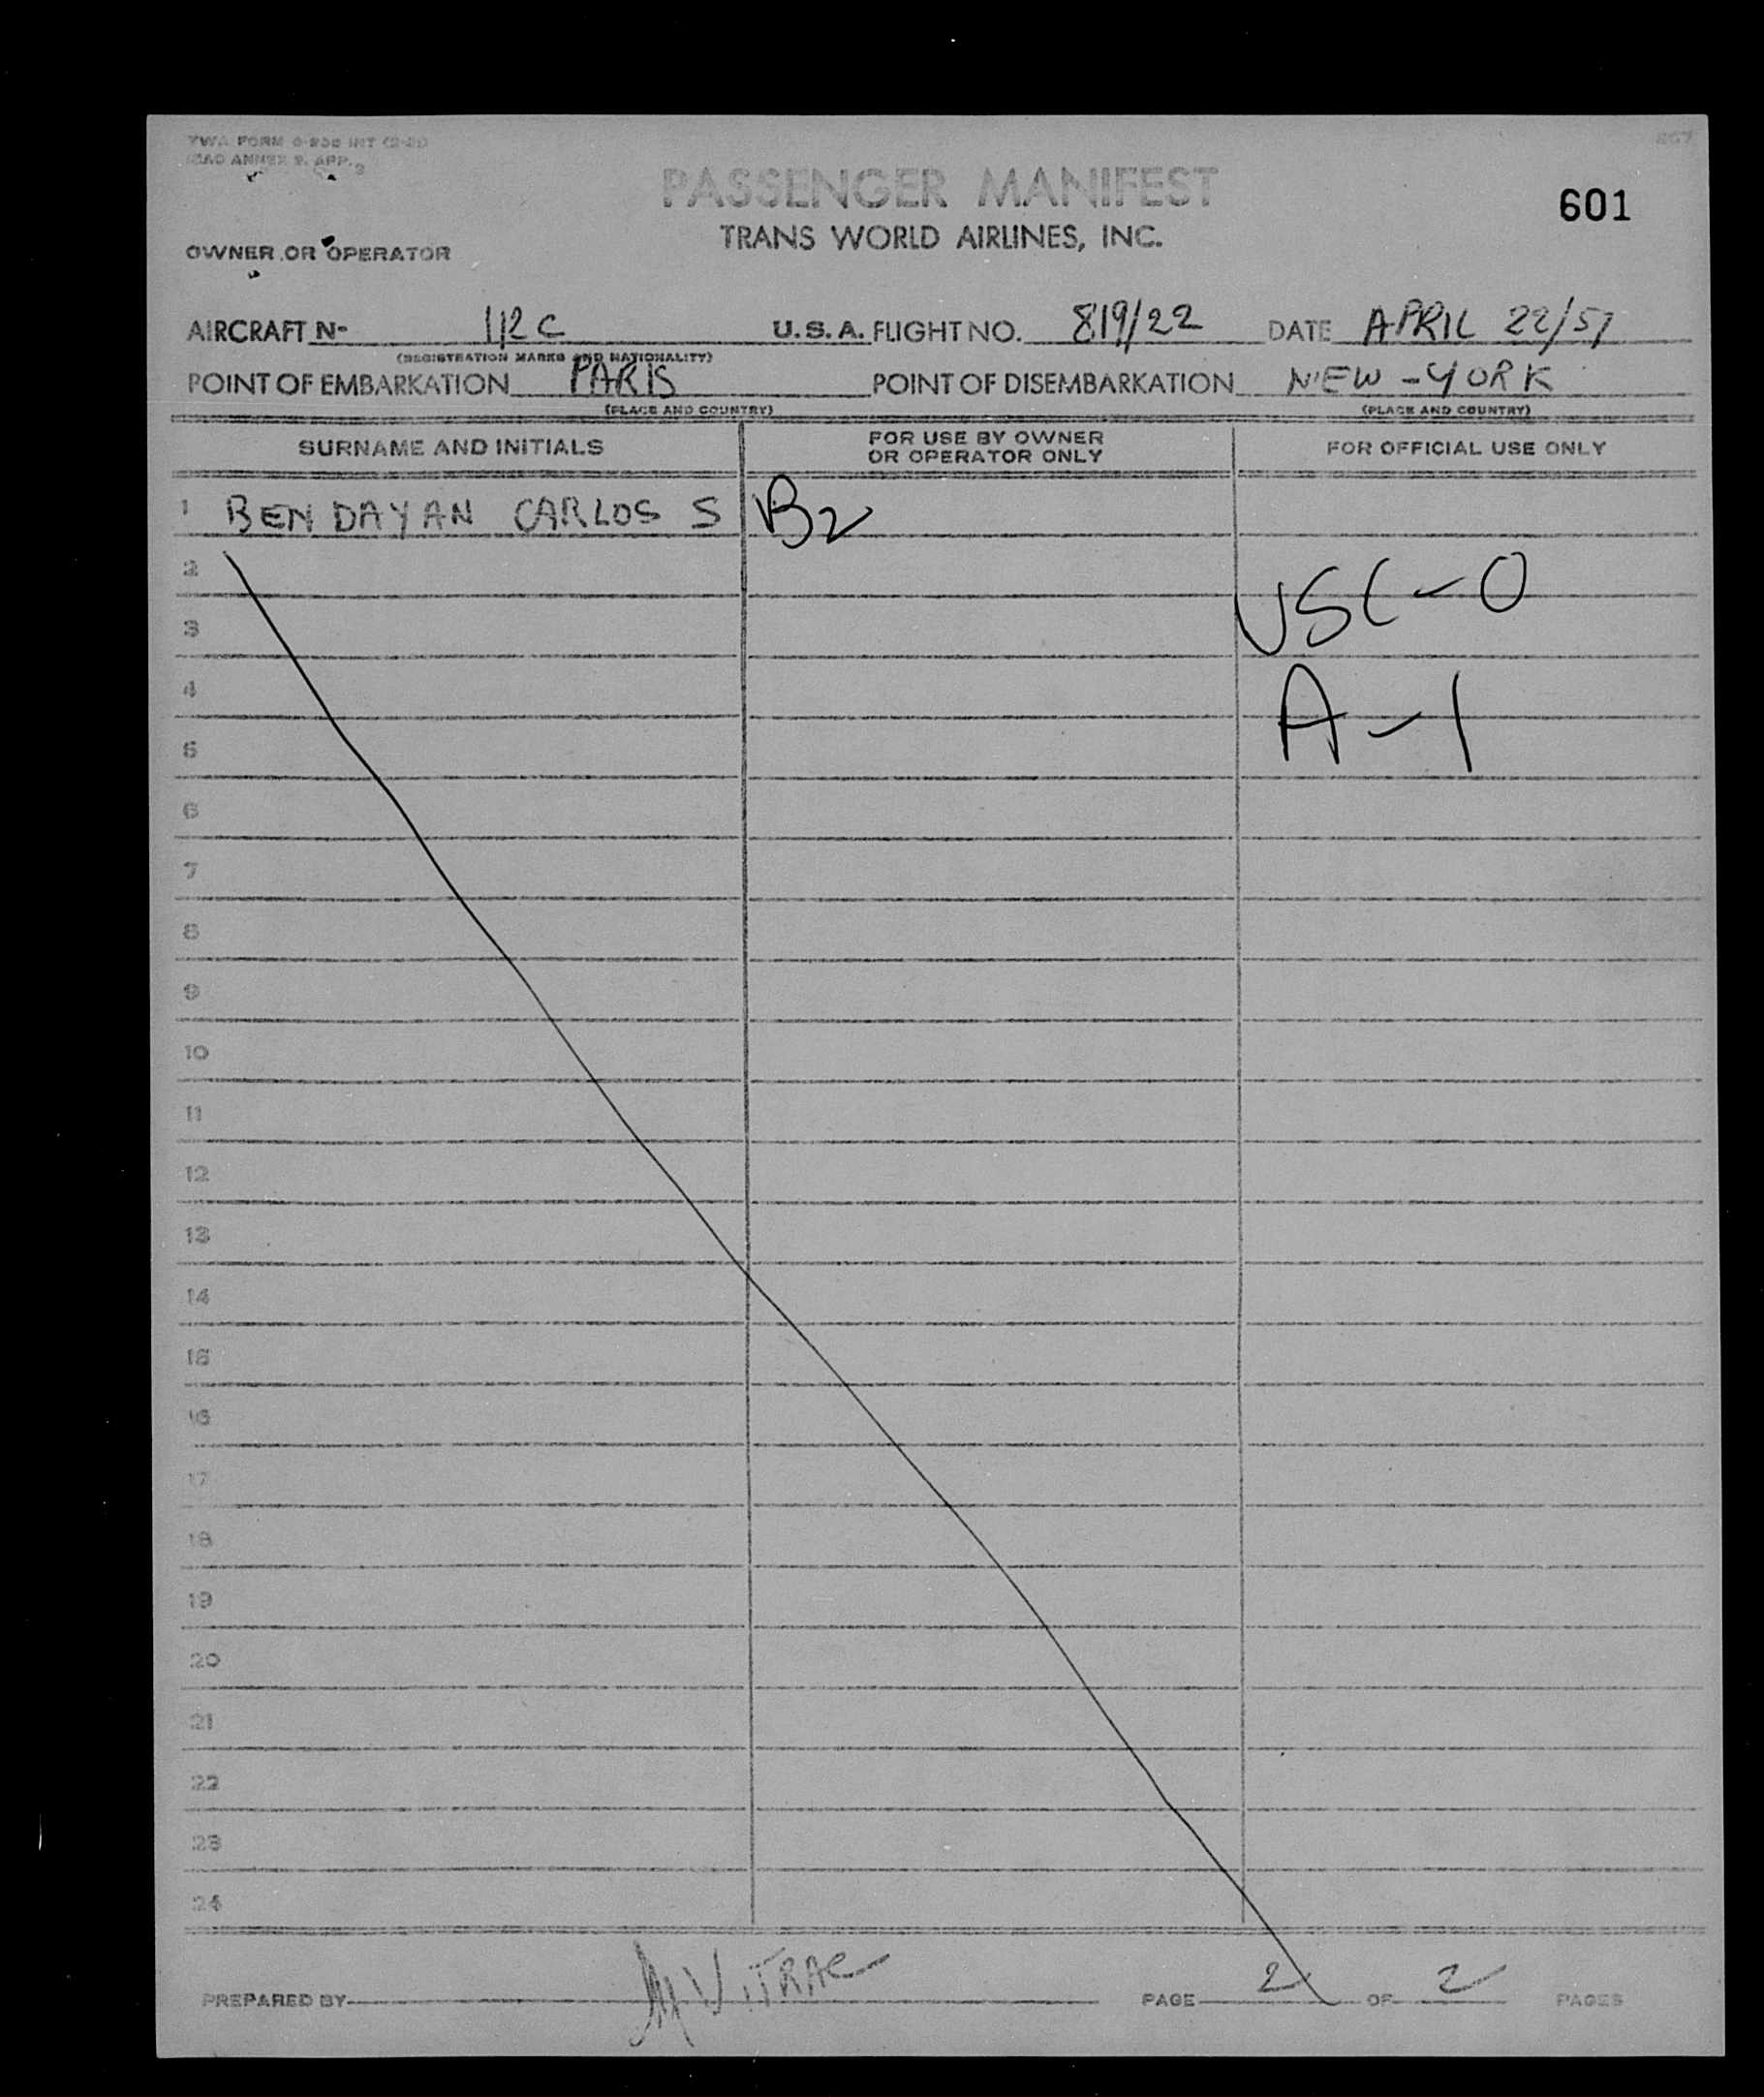 TWA FORM
ICAO ANNEX 9, APP. 3
PASSENGER MANIFEST
601
TRANS WORLD AIRLINES, INC.
OWNER OR OPERATOR
AIRCRAFT N- 112 C U.S.A. FLIGHT NO. 819/22 DATE APRIL 22/57
(REGISTRATION MARKS AND NATIONALITY)
POINT OF EMBARKATION PARIS POINT OF DISEMBARKATION NEW-YORK
(PLACE AND COUNTRY) (PLACE AND COUNTRY)
SURNAME AND INITIALS FOR USE BY OWNER OR OPERATOR ONLY FOR OFFICIAL USE ONLY
1 BENDAYAN CARLOS S B2
2 USC-0
3
4 A-1
5
6
7
8
9
10
11
12
13
14
15
16
17
18
19
20
21
22
23
24
PREPARED BY M VITRAC PAGE 2 OF 2 PAGES